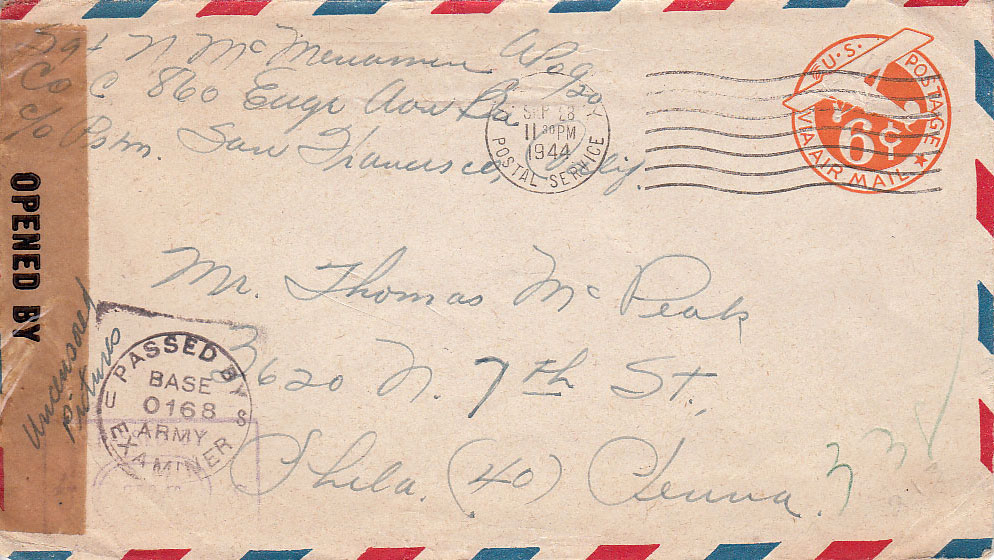 Sgt N McMenamin APO 920
Co C 860 Engr Avn Bn
c/o Psm. San Francisco, Calif.
SEP 28
11 30 PM
1944
POSTAL SERVICE
U.S. POSTAGE
6¢
VIA AIR MAIL
OPENED BY
Uncensored
pictures
PASSED BY
BASE
0168
ARMY
EXAMINER
U S
Mr. Thomas McPeak
3620 N. 7th St.,
Phila. (40) Penna.